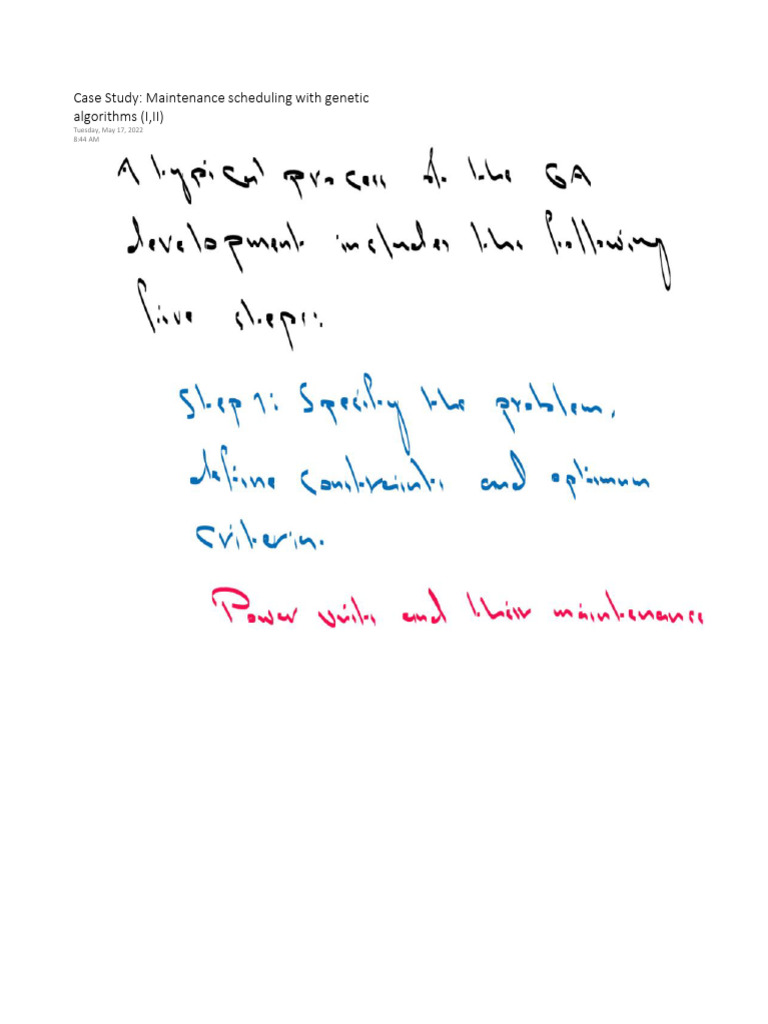 Case Study: Maintenance scheduling with genetic
algorithms (I,II)
Tuesday, May 17, 2022
8:44 AM
A typical process of the GA
development includes the following
five steps:
Step 1: Specify the problem,
define constraints and optimum
criteria.
Power units and their maintenance